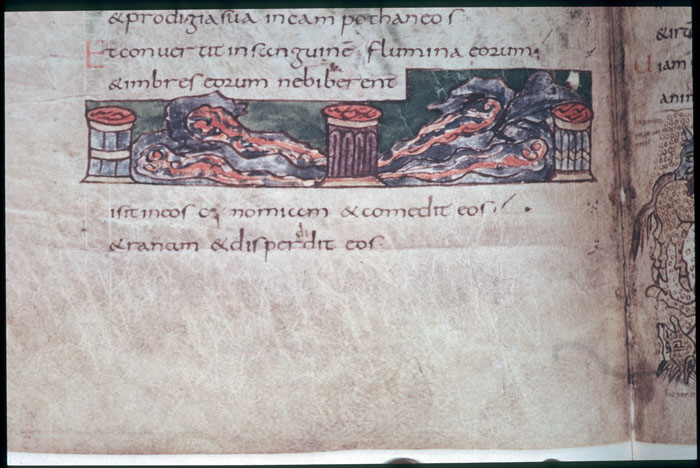 & prodigia sua in campo thaneos
Et convertit in sanguinē flumina eorum
& imbres eorum ne biberent
isit in eos cynomiam & comedit eos
& ranam & disperdidit eos
& ir
Uiam
anim